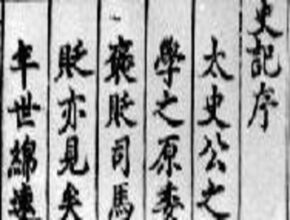 史記序
太史公之
學之原委
襃貶司馬
貶亦見矣
年世綿連